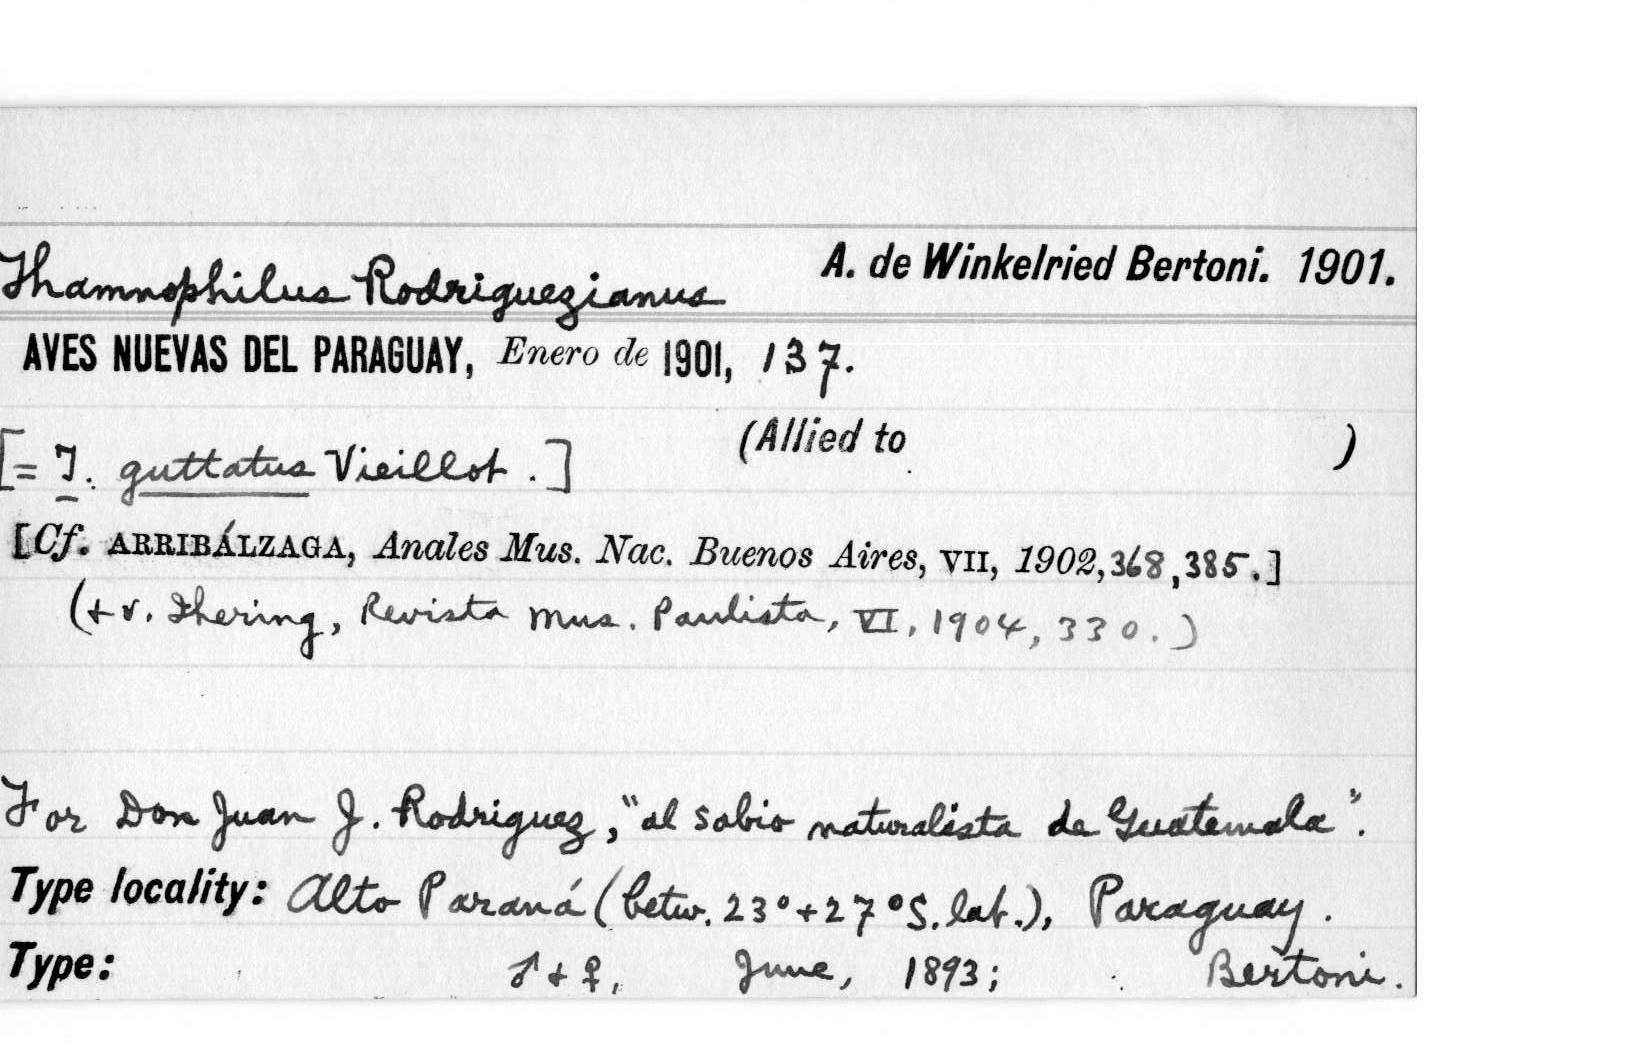 Thamnophilus Rodriguezianus A. de Winkelried Bertoni. 1901.
AVES NUEVAS DEL PARAGUAY, Enero de 1901, 137.
(Allied to )
[= T. guttatus Vieillot.]
[Cf. ARRIBÁLZAGA, Anales Mus. Nac. Buenos Aires, VII, 1902, 368, 385.]
(+ v. Ihering, Revista Mus. Paulista, VI, 1904, 330.)
For Don Juan J. Rodriguez, "al sabio naturalista de Guatemala".
Type locality: Alto Paraná (betw. 23° + 27° S. lat.), Paraguay.
Type: ♂ + ♀, June, 1893; Bertoni.